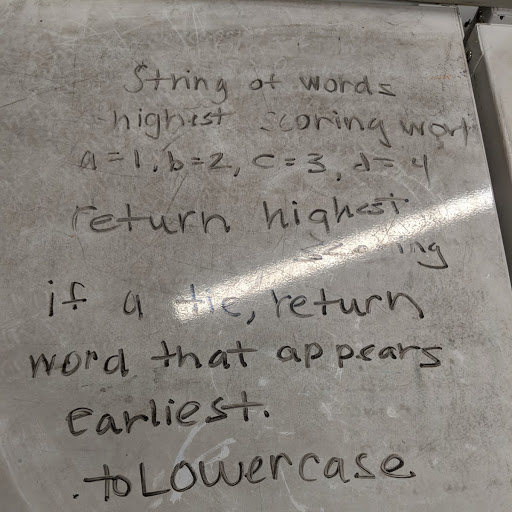 String of words
highest scoring word
a=1, b=2, c=3, d=4
return highest
scoring
if a tie, return
word that appears
Earliest.
.toLowercase